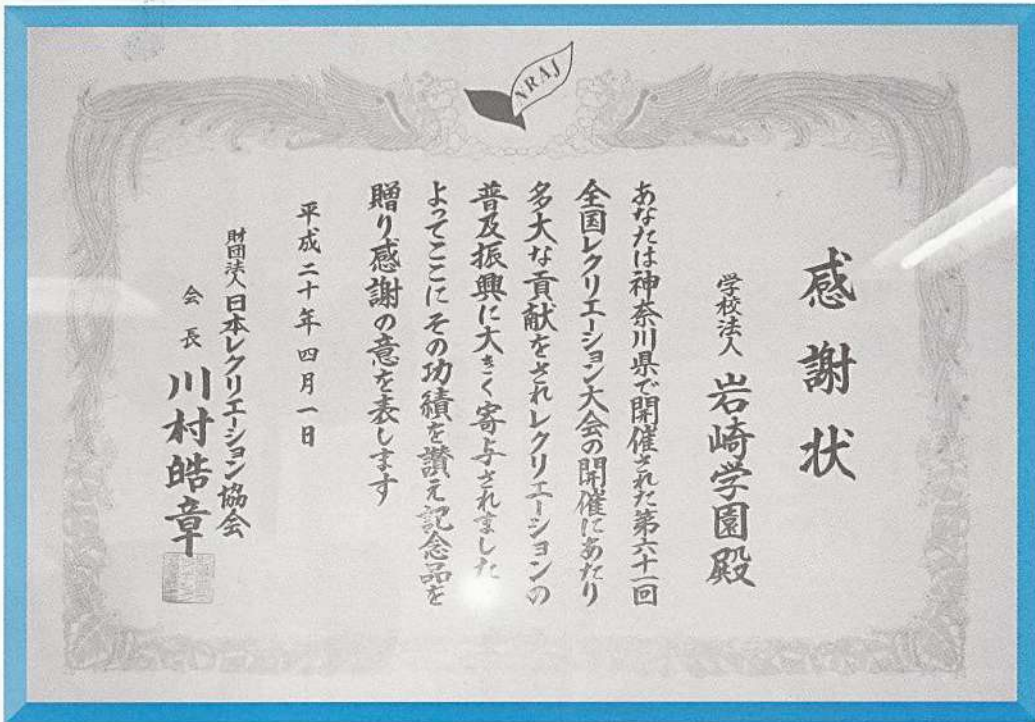 NRAJ
感謝状
学校法人 岩崎学園殿
あなたは神奈川県で開催された第六十一回
全国レクリエーション大会の開催にあたり
多大な貢献をされレクリエーションの
普及振興に大きく寄与されました
よってここにその功績を讃え記念品を
贈り感謝の意を表します
平成二十年四月一日
財団法人 日本レクリエーション協会
会長 川村皓章